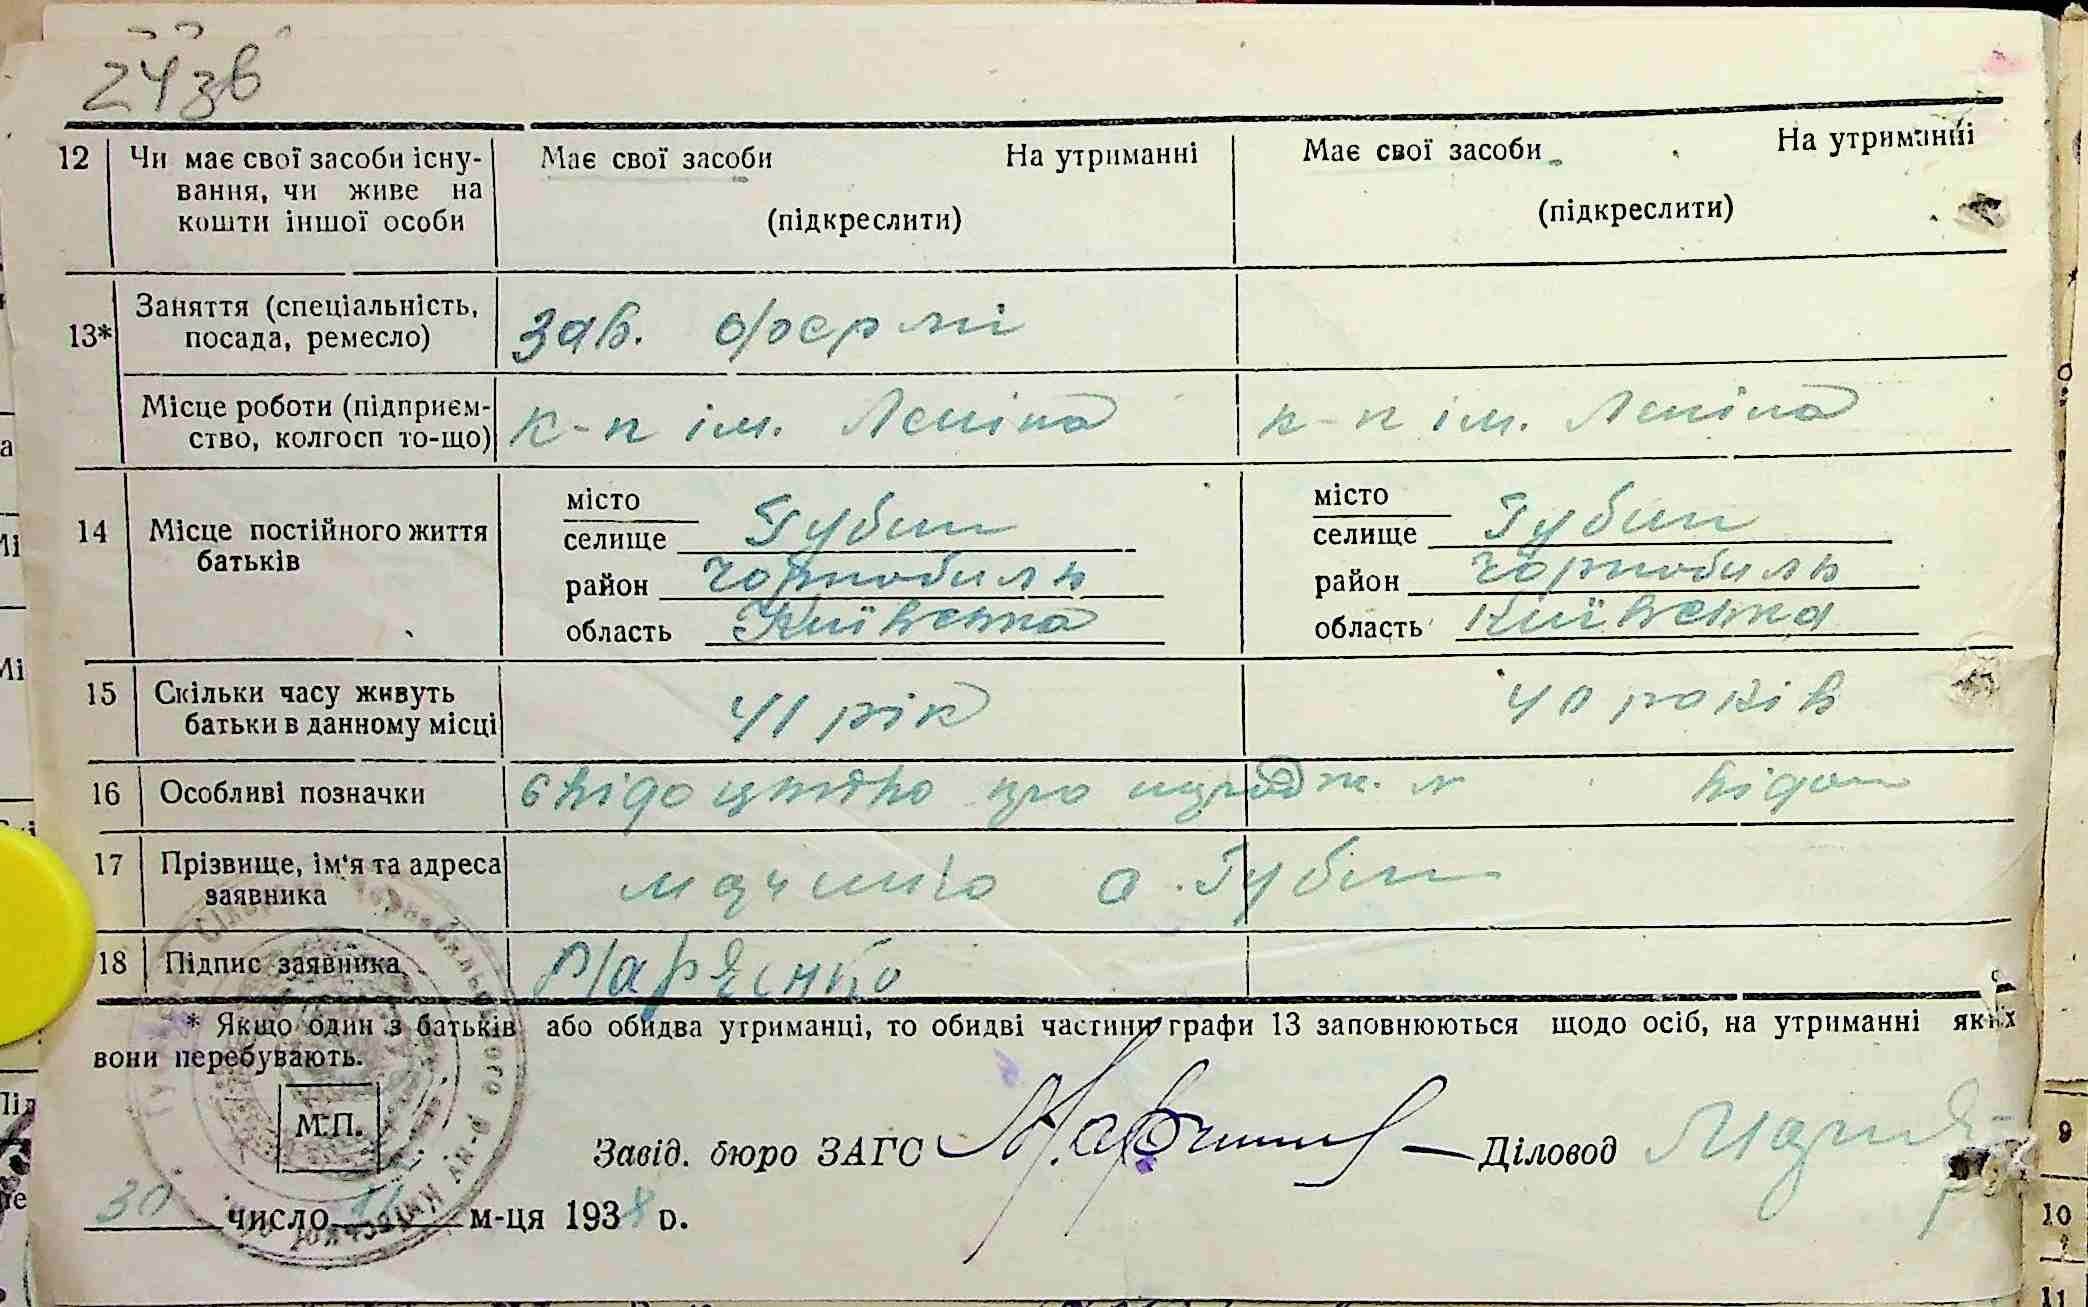 24зв
12 Чи має свої засоби існу-
вання, чи живе на
кошти іншої особи
Має свої засоби На утриманні
(підкреслити)
Має свої засоби На утриманні
(підкреслити)
13* Заняття (спеціальність,
посада, ремесло)
зав. фермі
Місце роботи (підприєм-
ство, колгосп то-що)
к-п ім. Леніна
к-п ім. Леніна
14 Місце постійного життя
батьків
місто
селище Губин
район Чорнобиль
область Київська
місто
селище Губин
район Чорнобиль
область Київська
15 Скільки часу живуть
батьки в данному місці
41 рік
40 років
16 Особливі позначки
свідоцтво про народж. № видан
17 Прізвище, ім'я та адреса
заявника
с. Губин
18 Підпис заявника
* Якщо один з батьків або обидва утриманці, то обидві частини графи 13 заповнюються щодо осіб, на утриманні яких
вони перебувають.
М.П.
Завід. бюро ЗАГС
Діловод
30 число 11 м-ця 1938 р.